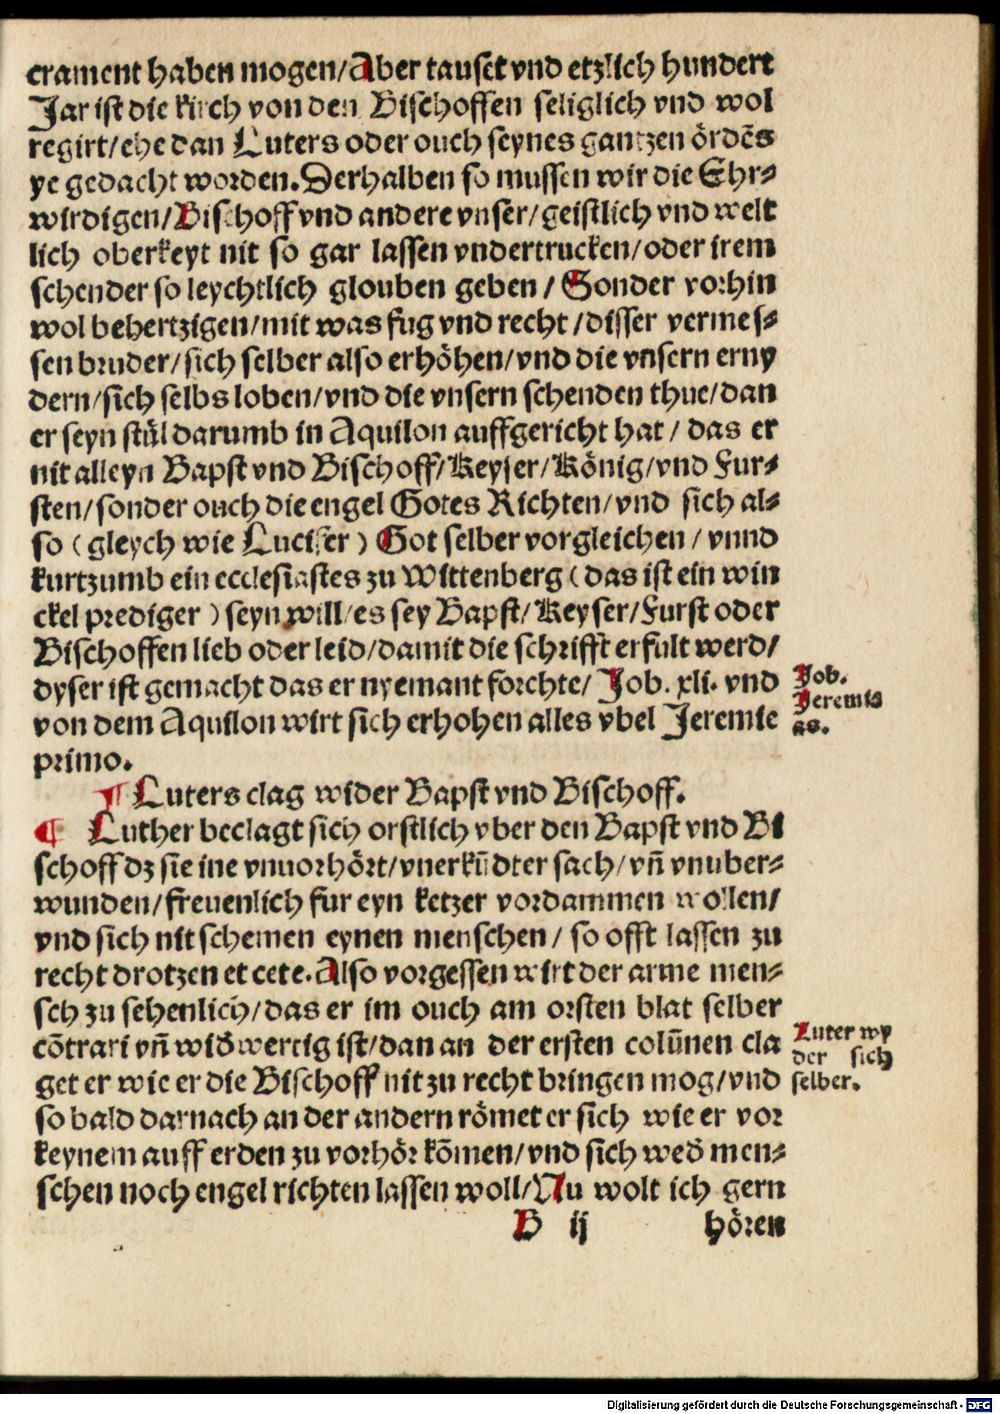 crament haben mogen/Aber tauset vnd etzlich hundert
Jar ist die kirch von den Bischoffen seliglich vnd wol
regirt/ehe dan Luters oder ouch seynes gantzen ördēs
ye gedacht worden. Derhalben so mussen wir die Ehr⸗
wirdigen/Bischoff vnd andere vnser/geistlich vnd welt
lich oberkeyt nit so gar lassen vndertrucken/oder irem
schender so leychtlich glouben geben/Sonder vorhin
wol behertzigen/mit was fug vnd recht/disser vermes⸗
sen bruder/sich selber also erhöhen/vnd die vnsern erny
dern/sich selbs loben/vnd die vnsern schenden thue/dan
er seyn stůl darumb in Aquilon auffgericht hat/das er
nit alleyn Bapst vnd Bischoff/Keyser/König/vnd Fur⸗
sten/sonder ouch die engel Gotes Richten/vnd sich al⸗
so (gleych wie Lucifer) Got selber vorgleichen/vnnd
kurtzumb ein ecclesiastes zu Wittenberg (das ist ein win
ckel prediger) seyn will/es sey Bapst/Keyser/Furst oder
Bischoffen lieb oder leid/damit die schrifft erfult werd/
dyser ist gemacht das er nyemant forchte/Job. xli. vnd
von dem Aquilon wirt sich erhohen alles vbel Jeremie
primo.
Job.
Jeremia
as.
¶ Luters clag wider Bapst vnd Bischoff.
¶ Luther beclagt sich orstlich vber den Bapst vnd Bi
schoff dz sie ine vnuorhört/vnerkūdter sach/vñ vnuber⸗
wunden/freuenlich fur eyn ketzer vordammen wollen/
vnd sich nit schemen eynen menschen/so offt lassen zu
recht drotzen et cete. Also vorgessen wirt der arme men⸗
sch zu sehenlich/das er im ouch am orsten blat selber
cōtrari vñ widwertig ist/dan an der ersten colūnen cla
get er wie er die Bischoff nit zu recht bringen mog/vnd
so bald darnach an der andern römet er sich wie er vor
keynem auff erden zu vorhör kōmen/vnd sich wed men⸗
schen noch engel richten lassen woll/Nu wolt ich gern
Luter wy
der sich
selber.
B ij hören
Digitalisierung gefördert durch die Deutsche Forschungsgemeinschaft - DFG